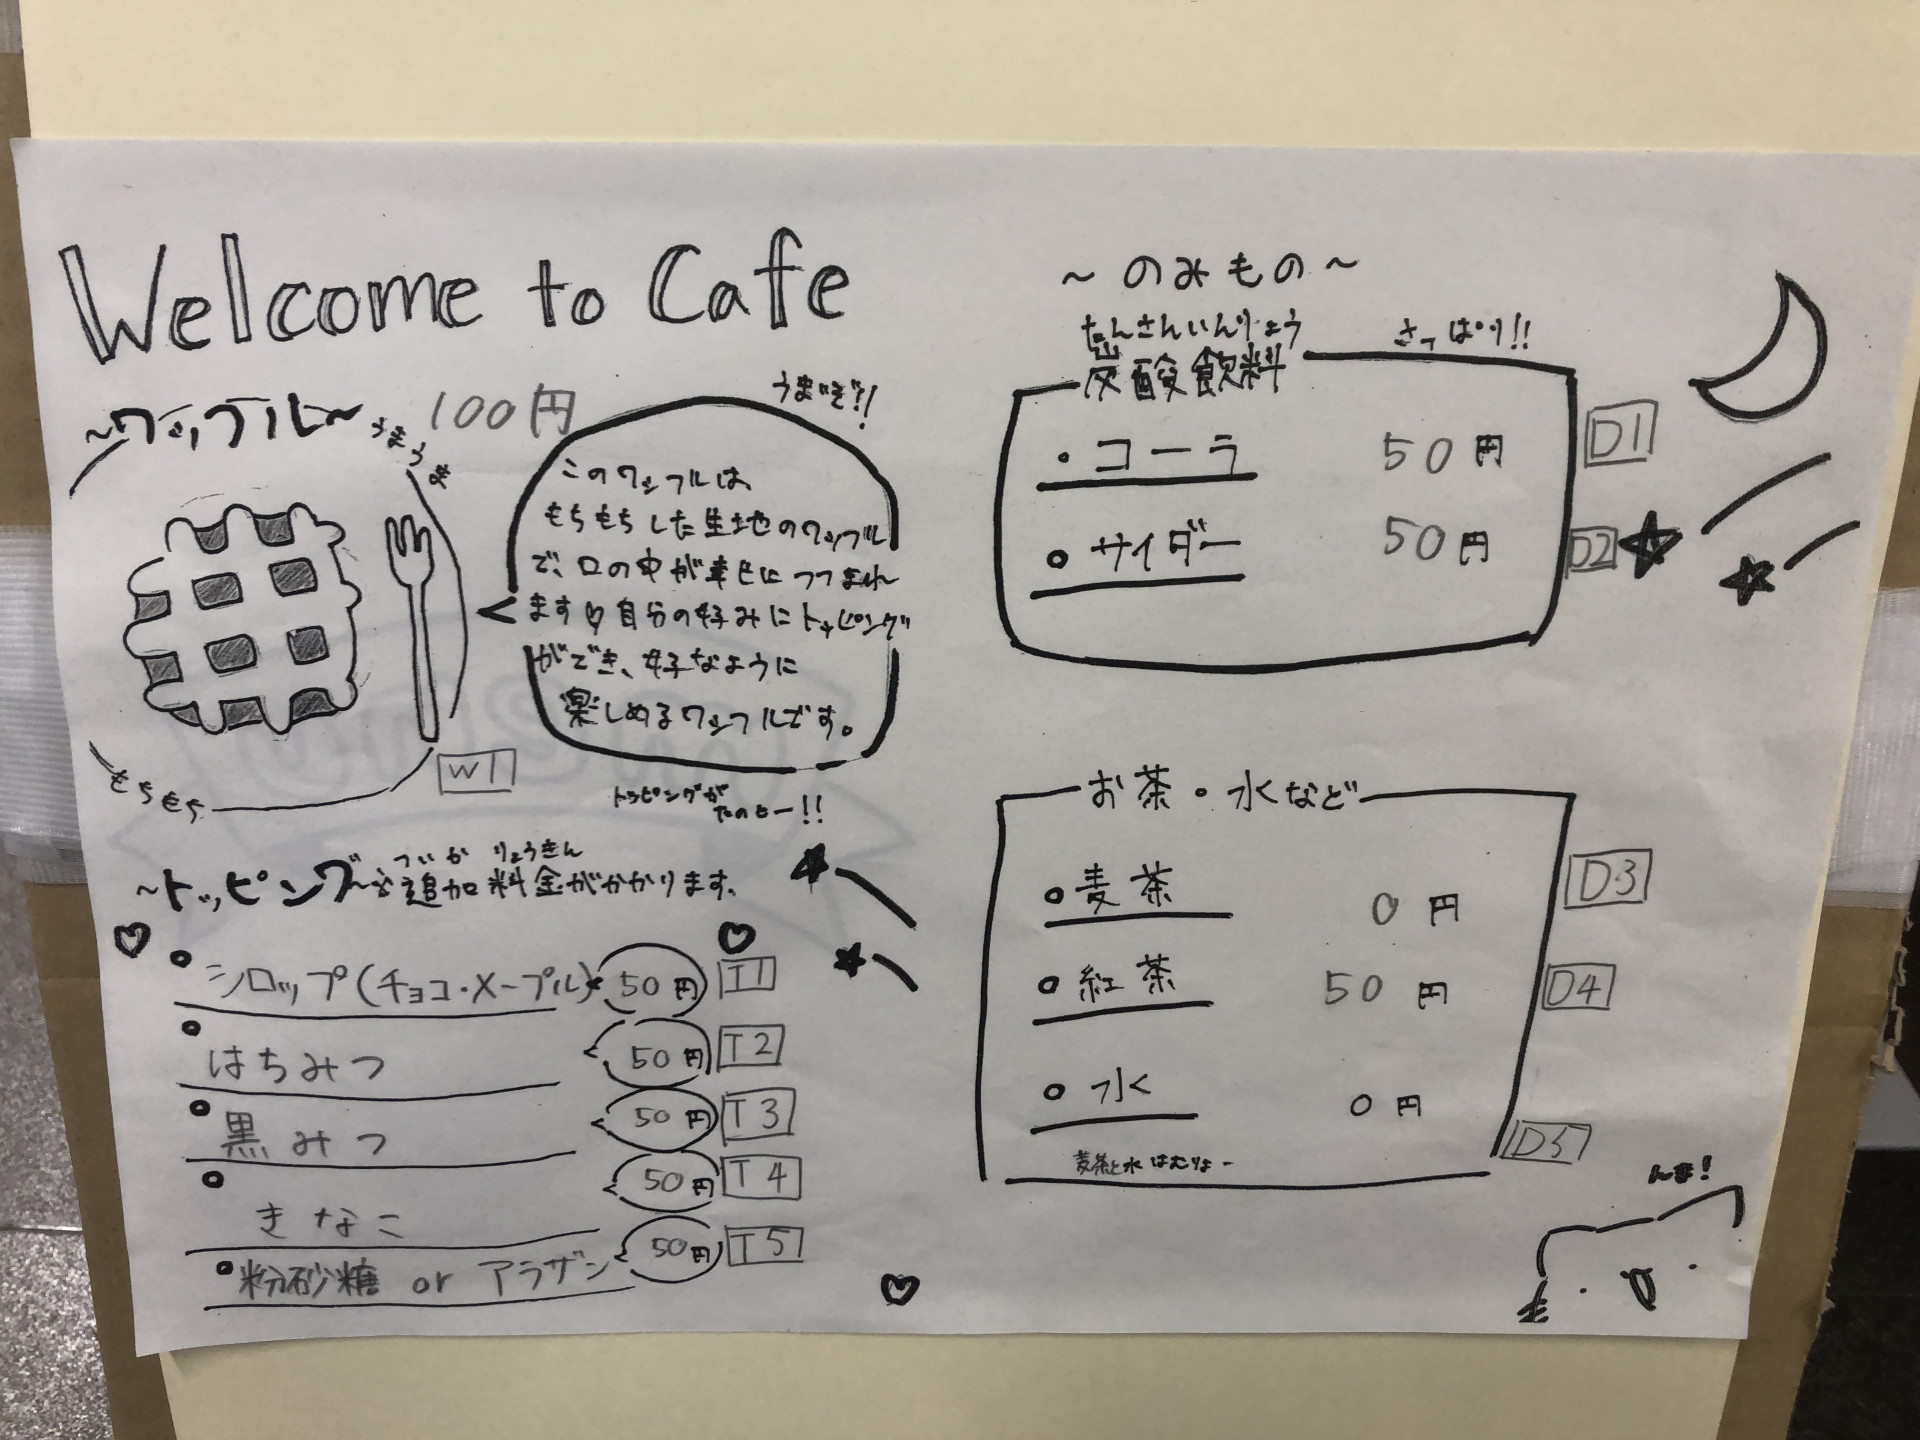 Welcome to Cafe
~ワッフル~ 100円
うまうま
もちもち
W1
うまいぞ!!
このワッフルは、
もちもちした生地のワッフル
で、口の中が幸せにつつまれ
ます♡自分の好みにトッピング
ができ、好なように
楽しめるワッフルです。
トッピングが
たのしー!!
ついか りょうきん
~トッピング~ 追加料金がかかります。
シロップ(チョコ・メープル) 50円 T1
はちみつ 50円 T2
黒みつ 50円 T3
きなこ 50円 T4
粉砂糖 or アラザン 50円 T5
~のみもの~
たんさんいんりょう
炭酸飲料
さっぱり!!
コーラ 50円 D1
サイダー 50円 D2
お茶・水など
麦茶 0円 D3
紅茶 50円 D4
水 0円 D5
麦茶と水はむりょー
んま!